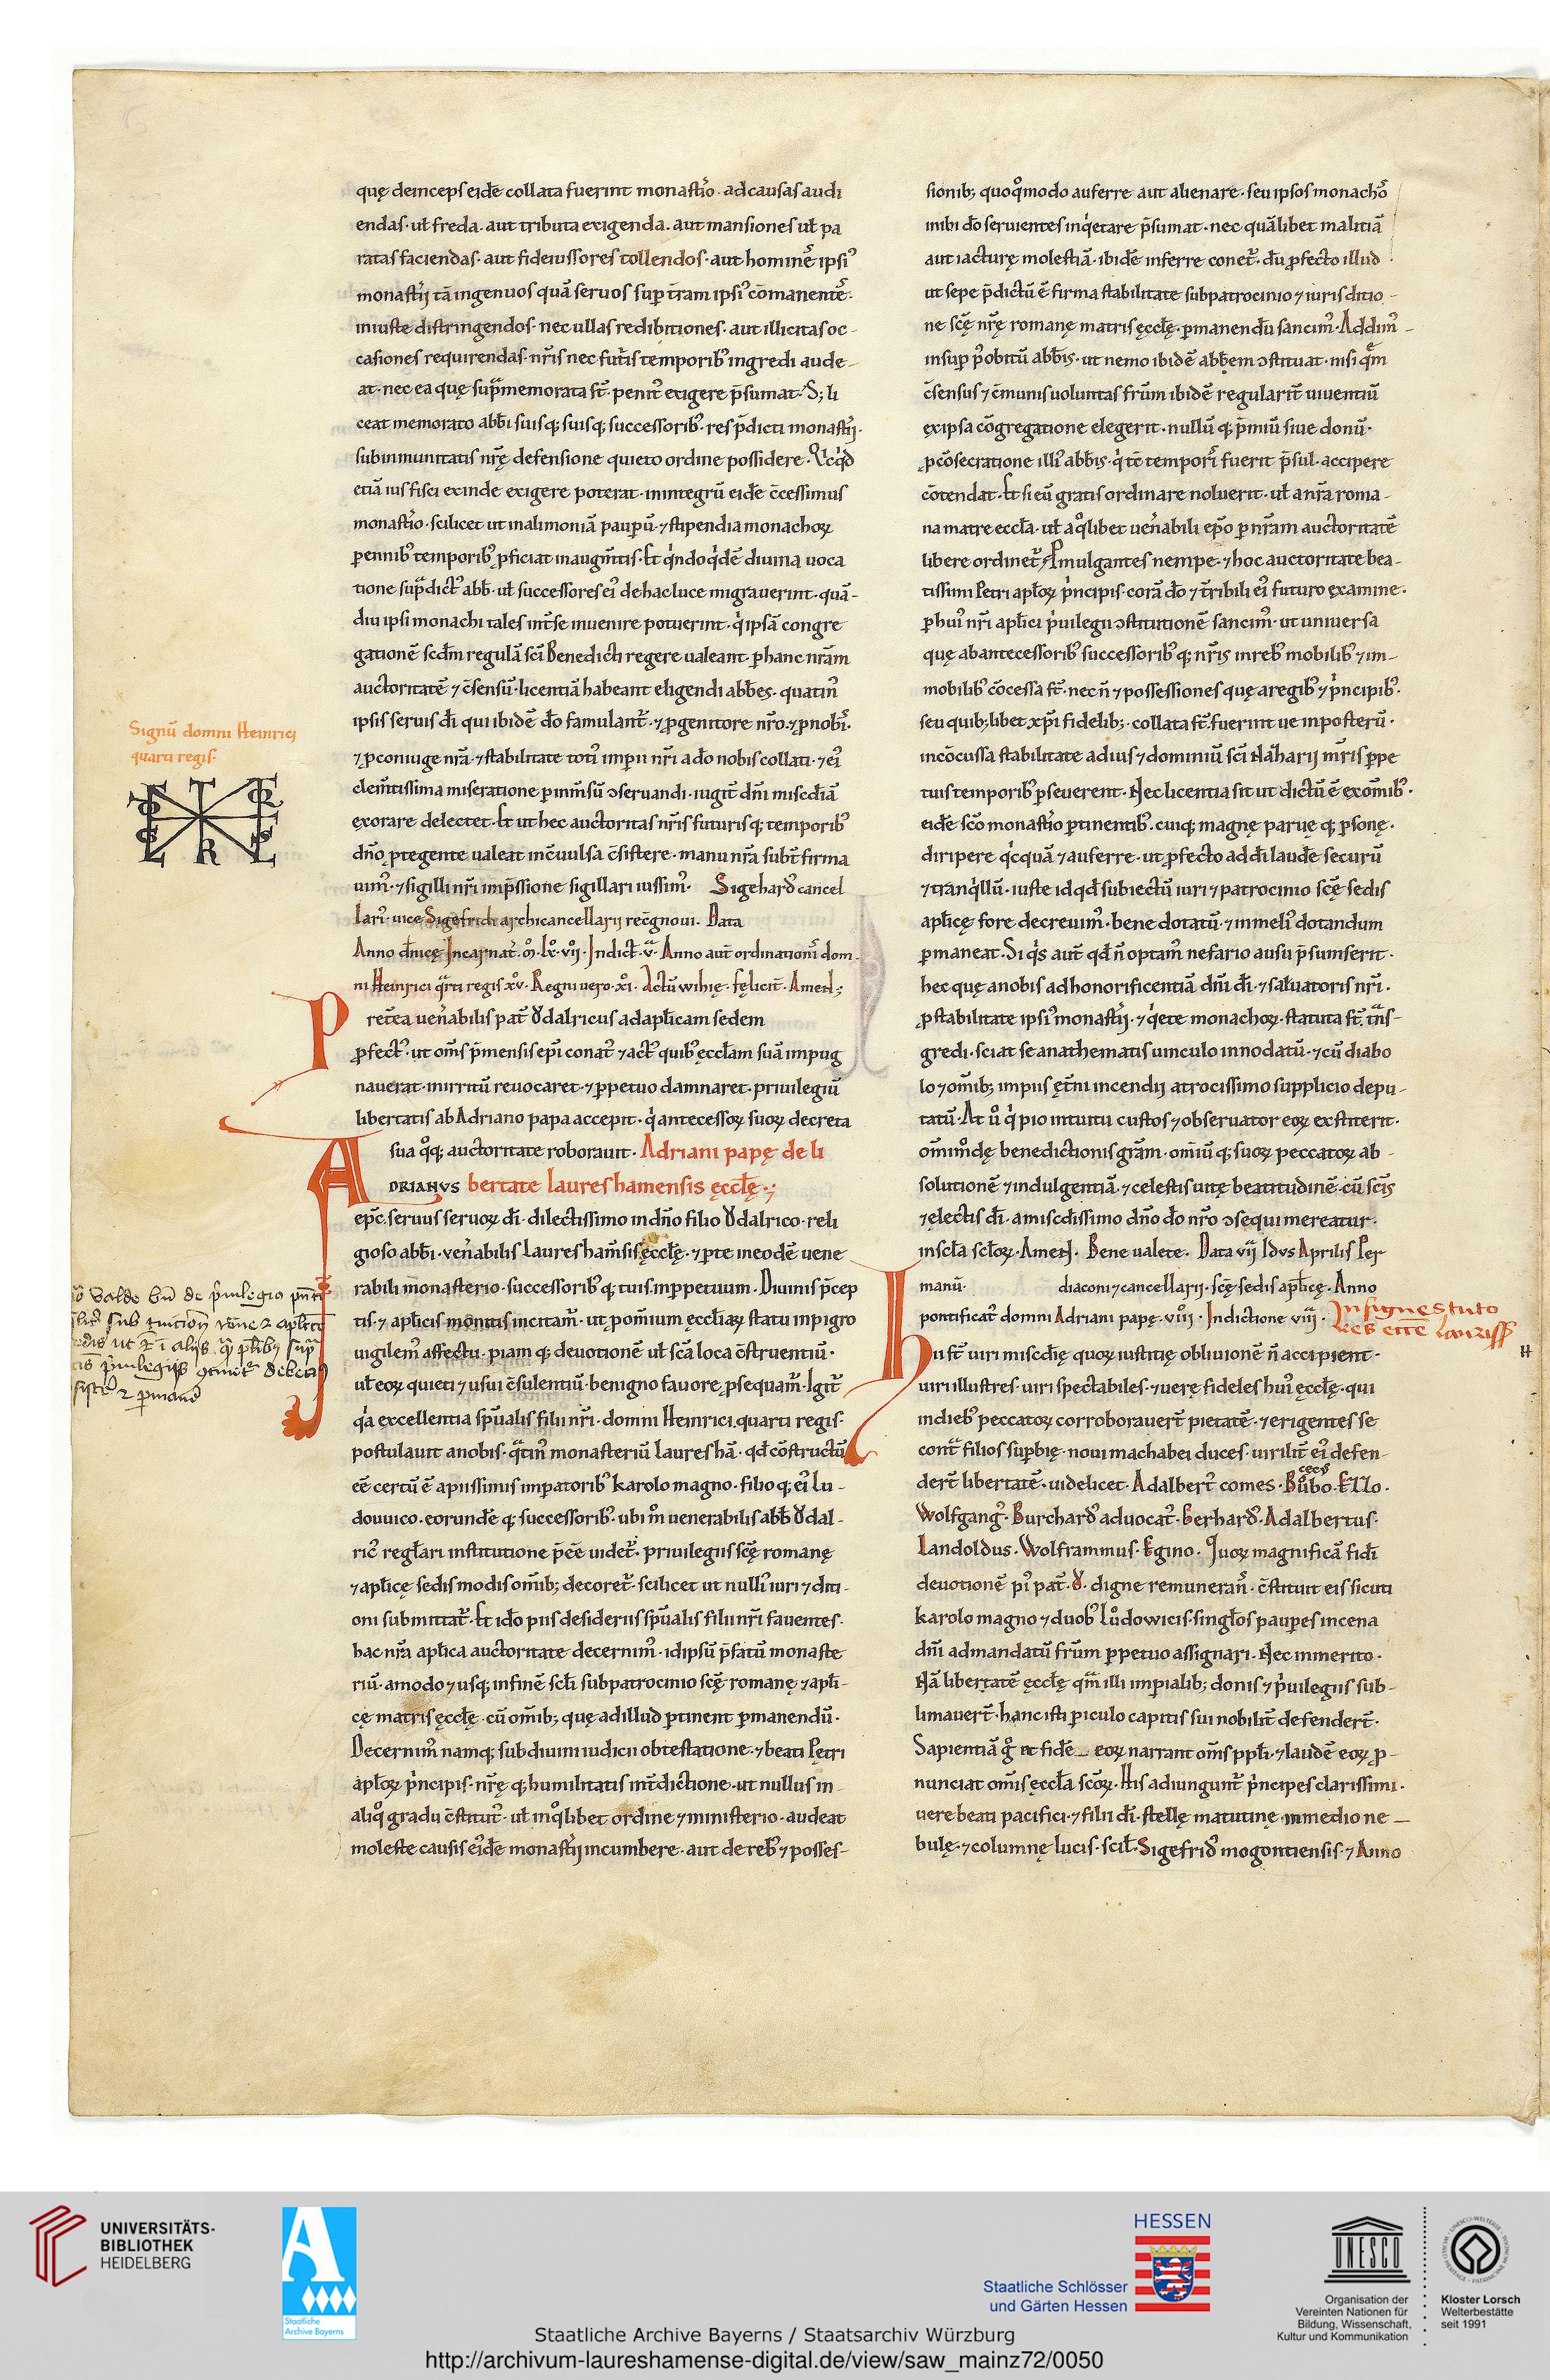 quę deinceps eidē collata fuerint monastio. ad causas audi
endas. ul̄ freda. aut tributa exigenda. aut mansiones ul̄ pa
ratas faciendas. aut fideiussores tollendos. aut hominē ipsi
monastij tā ingenuos quā seruos sup t̄ram ipsi cōmanente.
iniuste distringendos. nec ullas redibitiones. aut illicitas oc-
casiones requirendas. nr̄is nec futis temporib ingredi aude-
at. nec ea quę sup memorata st̄. penit exigere p̄sumat. S; li
ceat memorato abb̄i suisq; suisq; successorib. res p̄dicti monastij.
sub inmunitatis nr̄ę defensione quieto ordine possidere. Qicqd
etiā ius fisci exinde exigere poterat. in integrū eidē c̄cessimus
monastio. scilicet ut in alimoniā paupū. ⁊ stipendia monachoꝝ
pennib temporib pficiat in augm̄tis. Et qndoqdē diuina uoca
tione sup dict abb. ul̄ successores ei de hac luce migrauerint. quā-
diu ipsi monachi tales int̄ se inuenire potuerint. qi ipsā congre
gationē scd̄m regulā sc̄i Benedicti regere ualeant. p hanc nr̄am
auctoritatē ⁊ c̄sensū. licentiā habeant eligendi abb̄es. quatin
ipsis seruis dī qui ibidē do famulant̄. ⁊ p genitore nr̄o. ⁊ p nobi.
⁊ p coniuge nr̄a. ⁊ stabilitate toti imp̄ii nr̄i a do nobis collati. ⁊ ei
clem̄tissima miseratione p inm̄sū ɔseruandi. iugit̄ dn̄i miscd̄iā
exorare delectet. Et ut hec auctoritas nr̄is futurisq; temporib
dn̄o ptegente ualeat incuulsa c̄sistere. manu nr̄a subt̄ firma
uim. ⁊ sigilli nr̄i imp̄ssione sigillari iussim. Sigehard cancel
lari. uice Sigefridi archicancellarij rec̄gnoui. Data
Anno dn̄icę Incarnat. ō. lx. vij. Indict. v. Anno aut ordinationi dom-
ni Heinrici qrti regis xv. Regni uero. xi. Actū wihię. fęlicit̄. Amen;
Signū domni Heinrici
quarti regis.
Pret̄ea uen̄abilis pat̄ Ǒdalricus ad apl̄icam sedem
pfect. ut om̄s p̄mensis ep̄i conat̄ ⁊ act quib ęccl̄am suā impug
nauerat. in irritū reuocaret. ⁊ ppetuo damnaret. priuilegiū
libertatis ab Adriano papa accepit. qi antecessoꝝ suoꝝ decreta
sua qq; auctoritate roborauit. Adriani papę de li
ADRIANVS bertate laureshamensis ęccl̄ę.;
ep̄c. seruus seruoꝝ dī. dilectissimo in dn̄o filio Ǒdalrico. reli
gioso abb̄i. ven̄abilis Lauresham̄sis ęccl̄ę. ⁊ p te in eodē uene
rabili monasterio. successoribq; tuis. in ppetuum. Diuinis p̄cep
tis. ⁊ apl̄icis monitis incitam. ut p om̄ium ęccl̄iaꝝ statu inpigro
uigilem affectu. piam q; deuotionē ul̄ sc̄a loca c̄struentiū.
ul̄ eoꝝ quieti ⁊ usui c̄sulentiū. benigno fauore psequam. Igit̄
qa excellentia sp̄ualis filii nr̄i. domni Heinrici quarti regis.
postulauit a nobis. qtin monasteriū laureshā. qd cōstructū
eē certū ē a piissimis impatorib karolo magno. filioq; ei Lu-
douuico. eorundēq; successorib. ubi m uenerabilis abb Ǒdal-
ric regl̄ari institutione p̄eē uidet̄. priuilegiis sc̄ę romanę
⁊ apl̄icę sedis modis om̄ib; decoret̄. scilicet ut nulli iuri ⁊ diti-
oni submittat̄. Et ido piis desideriis sp̄ualis filii nr̄i fauentes.
hac nr̄a apl̄ica auctoritate decernim. id ipsū p̄fatū monaste
riū. amodo ⁊ usq; in finē scl̄i sub patrocinio sc̄ę romanę ⁊ apl̄i-
cę matris ęccl̄ę. cū om̄ib; quę ad illud ptinent pmanendū.
Decernim namq; sub diuini iudicii obtestatione. ⁊ beati Pętri
apl̄oꝝ p̄ncipis. nr̄ęq; humilitatis int̄dictione. ut nullus in
aliqo gradu c̄stitut. ul̄ in qolibet ordine ⁊ ministerio. audeat
moleste causis eidē monastij incumbere. aut de reb ⁊ posses-
sionib; quoqomodo auferre aut alienare. seu ipsos monacho
inibi do seruientes inqietare p̄sumat. nec quālibet malitiā
aut iacturę molestiā. ibidē inferre conet̄. dū pfecto illud
ut sepe p̄dictū ē firma stabilitate sub patrocinio ⁊ iuris ditio-
ne sc̄ę nr̄ę romanę matris ęccl̄ę. pmanendū sancim. Addim-
insup p obitū abb̄is. ut nemo ibidē abb̄em ɔstituat. nisi qm
c̄sensus ⁊ c̄munis uoluntas fr̄um ibidē regularit̄ uiuentiū
ex ipsa cōgregatione elegerit. nullūq; p̄miū siue donū.
p cōsecratione illi abb̄is. qi tc̄ tempori fuerit p̄sul. accipere
cōtendat. Et si eū gratis ordinare noluerit. ul̄ a nr̄a roma-
na matre eccl̄a. ul̄ a qolibet uen̄abili ep̄o p nr̄am auctoritatē
libere ordinet̄. Pmulgantes nempe. ⁊ hoc auctoritate bea-
tissimi Petri apl̄oꝝ p̄ncipis. corā do ⁊ t̄ribili ei futuro examine.
p hui nr̄i apl̄ici p̄uilegii ɔstitutionē sancim. ut uniuersa
quę ab antecessorib successorib q; nr̄is in reb mobilib ⁊ im-
mobilib cōcessa st̄. nec n̄ ⁊ possessiones quę a regib ⁊ p̄ncipib.
seu quib; libet xp̄i fidelib;. collata st̄. fuerint ue in posterū.
incōcussa stabilitate ad ius ⁊ dominiū sc̄i Nazharij mr̄is ppe
tuis temporib pseuerent. Nec licentia sit ut dictū ē ex om̄ib.
eidē sc̄o monastio ptinentib. cuiq; magnę paruęq; psonę.
diripere qcquā ⁊ auferre. ut pfecto ad dī laudē securū
⁊ tranqillū. iuste id qd subiectū iuri ⁊ patrocinio sc̄ę sedis
apl̄icę fore decreuim. bene dotatū. ⁊ in meli dotandum
pmaneat. Si qs aut qd n̄ optam nefario ausu p̄sumserit.
hec quę a nobis ad honorificentiā dn̄i dī. ⁊ saluatoris nr̄i.
p stabilitate ipsi monastij. ⁊ qiete monachoꝝ. statuta st̄. t̄ns-
gredi. sciat se anathematis uinculo innodatū. ⁊ cū diabo
lo ⁊ om̄ib; impiis ęt̄ni incendij atrocissimo supplicio depu-
tatū. At u qi pio intuitu custos ⁊ obseruator eoꝝ exstiterit.
om̄imodę benedictionis gr̄am. om̄iūq; suoꝝ peccatoꝝ ab-
solutionē ⁊ indulgentiā. ⁊ celestis uitę beatitudinē. cū sc̄is
⁊ electis dī. a miscd̄issimo dn̄o do nr̄o ɔsequi mereatur.
in scl̄a scl̄oꝝ. Amen. Bene ualete. Data vij Idvs Aprilis Per
manū. diaconi ⁊ cancellarij. sc̄ę sedis apl̄icę. Anno
pontificat domni Adriani papę. viij. Indictione viij. In signes tuto
res Laurissꝭ
Hii st̄ uiri miscd̄ię quoꝝ iustitię obliuionē n̄ accipient.
uiri illustres. uiri spectabiles. ⁊ uerę fideles hui ęccl̄ę. qui
in dieb peccatoꝝ corroborauert̄ pietatē. ⁊ erigentes se
cont̄ filios supbię. noui machabei duces. uirilit̄ ei defen-
dert̄ libertatē. uidelicet. Adalbert comes. Bůbo. Ezzo.
Wolfgang. Burchard aduocat. Gerhard. Adalbertus.
Landoldus. Wolframmus. Egino. Quoꝝ magnificā fidī
deuotionē pi pat̄. Ǒ. digne remuneran. c̄stituit eis sicuti
karolo magno ⁊ duob Lůdowicis. singl̄os paupes in cena
dn̄i ad mandatū fr̄um ppetuo assignari. Nec inmerito.
Nā libertatē ęccl̄ę qm illi imp̄ialib; donis ⁊ p̄uilegiis sub-
limauert̄. hanc isti piculo capitis sui nobilit̄ defendert̄.
Sapientiā g ac fidē eoꝝ narrant om̄s ppl̄i. ⁊ laudē eoꝝ p-
nunciat om̄is ęccl̄a sc̄oꝝ. His adiungunt̄ p̄ncipes clarissimi.
uere beati pacifici. ⁊ filii dī. stellę matutinę in medio ne-
bulę. ⁊ columnę lucis. scil̄. Sigefrid mogontiensis. ⁊ Anno
UNIVERSITÄTS-
BIBLIOTHEK
HEIDELBERG
Staatliche
Archive Bayerns
HESSEN
Staatliche Schlösser
und Gärten Hessen
UNESCO
Organisation der
Vereinten Nationen für
Bildung, Wissenschaft,
Kultur und Kommunikation
Kloster Lorsch
Welterbestätte
seit 1991
Staatliche Archive Bayerns / Staatsarchiv Würzburg
http://archivum-laureshamense-digital.de/view/saw_mainz72/0050